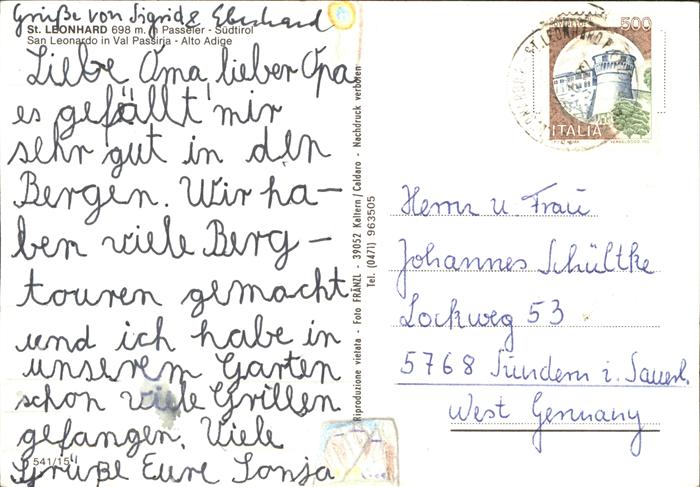 Grüße von Sigrid & Eberhard
St. LEONHARD 698 m. in Passeier - Südtirol
San Leonardo in Val Passiria - Alto Adige
Liebe Oma, lieber Opa
es gefällt mir
sehr gut in den
Bergen. Wir ha-
ben viele Berg-
touren gemacht
und ich habe in
unserem Garten
schon viele Grillen
gefangen. Viele
Grüße Eure Sonja
541/15
Riproduzione vietata - Foto FRÄNZL - 39052 Kaltern/Caldaro - Nachdruck verboten
Tel. (0471) 963505
500
ITALIA
ST. LEONHARD
Herrn u. Frau
Johannes Schültke
Lockweg 53
5768 Sundern i. Sauerl.
West Germany